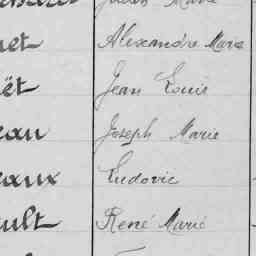 net Alexandre Marie
ët Jean Louis
eau Joseph Marie
eaux Ludovic
ult René Marie